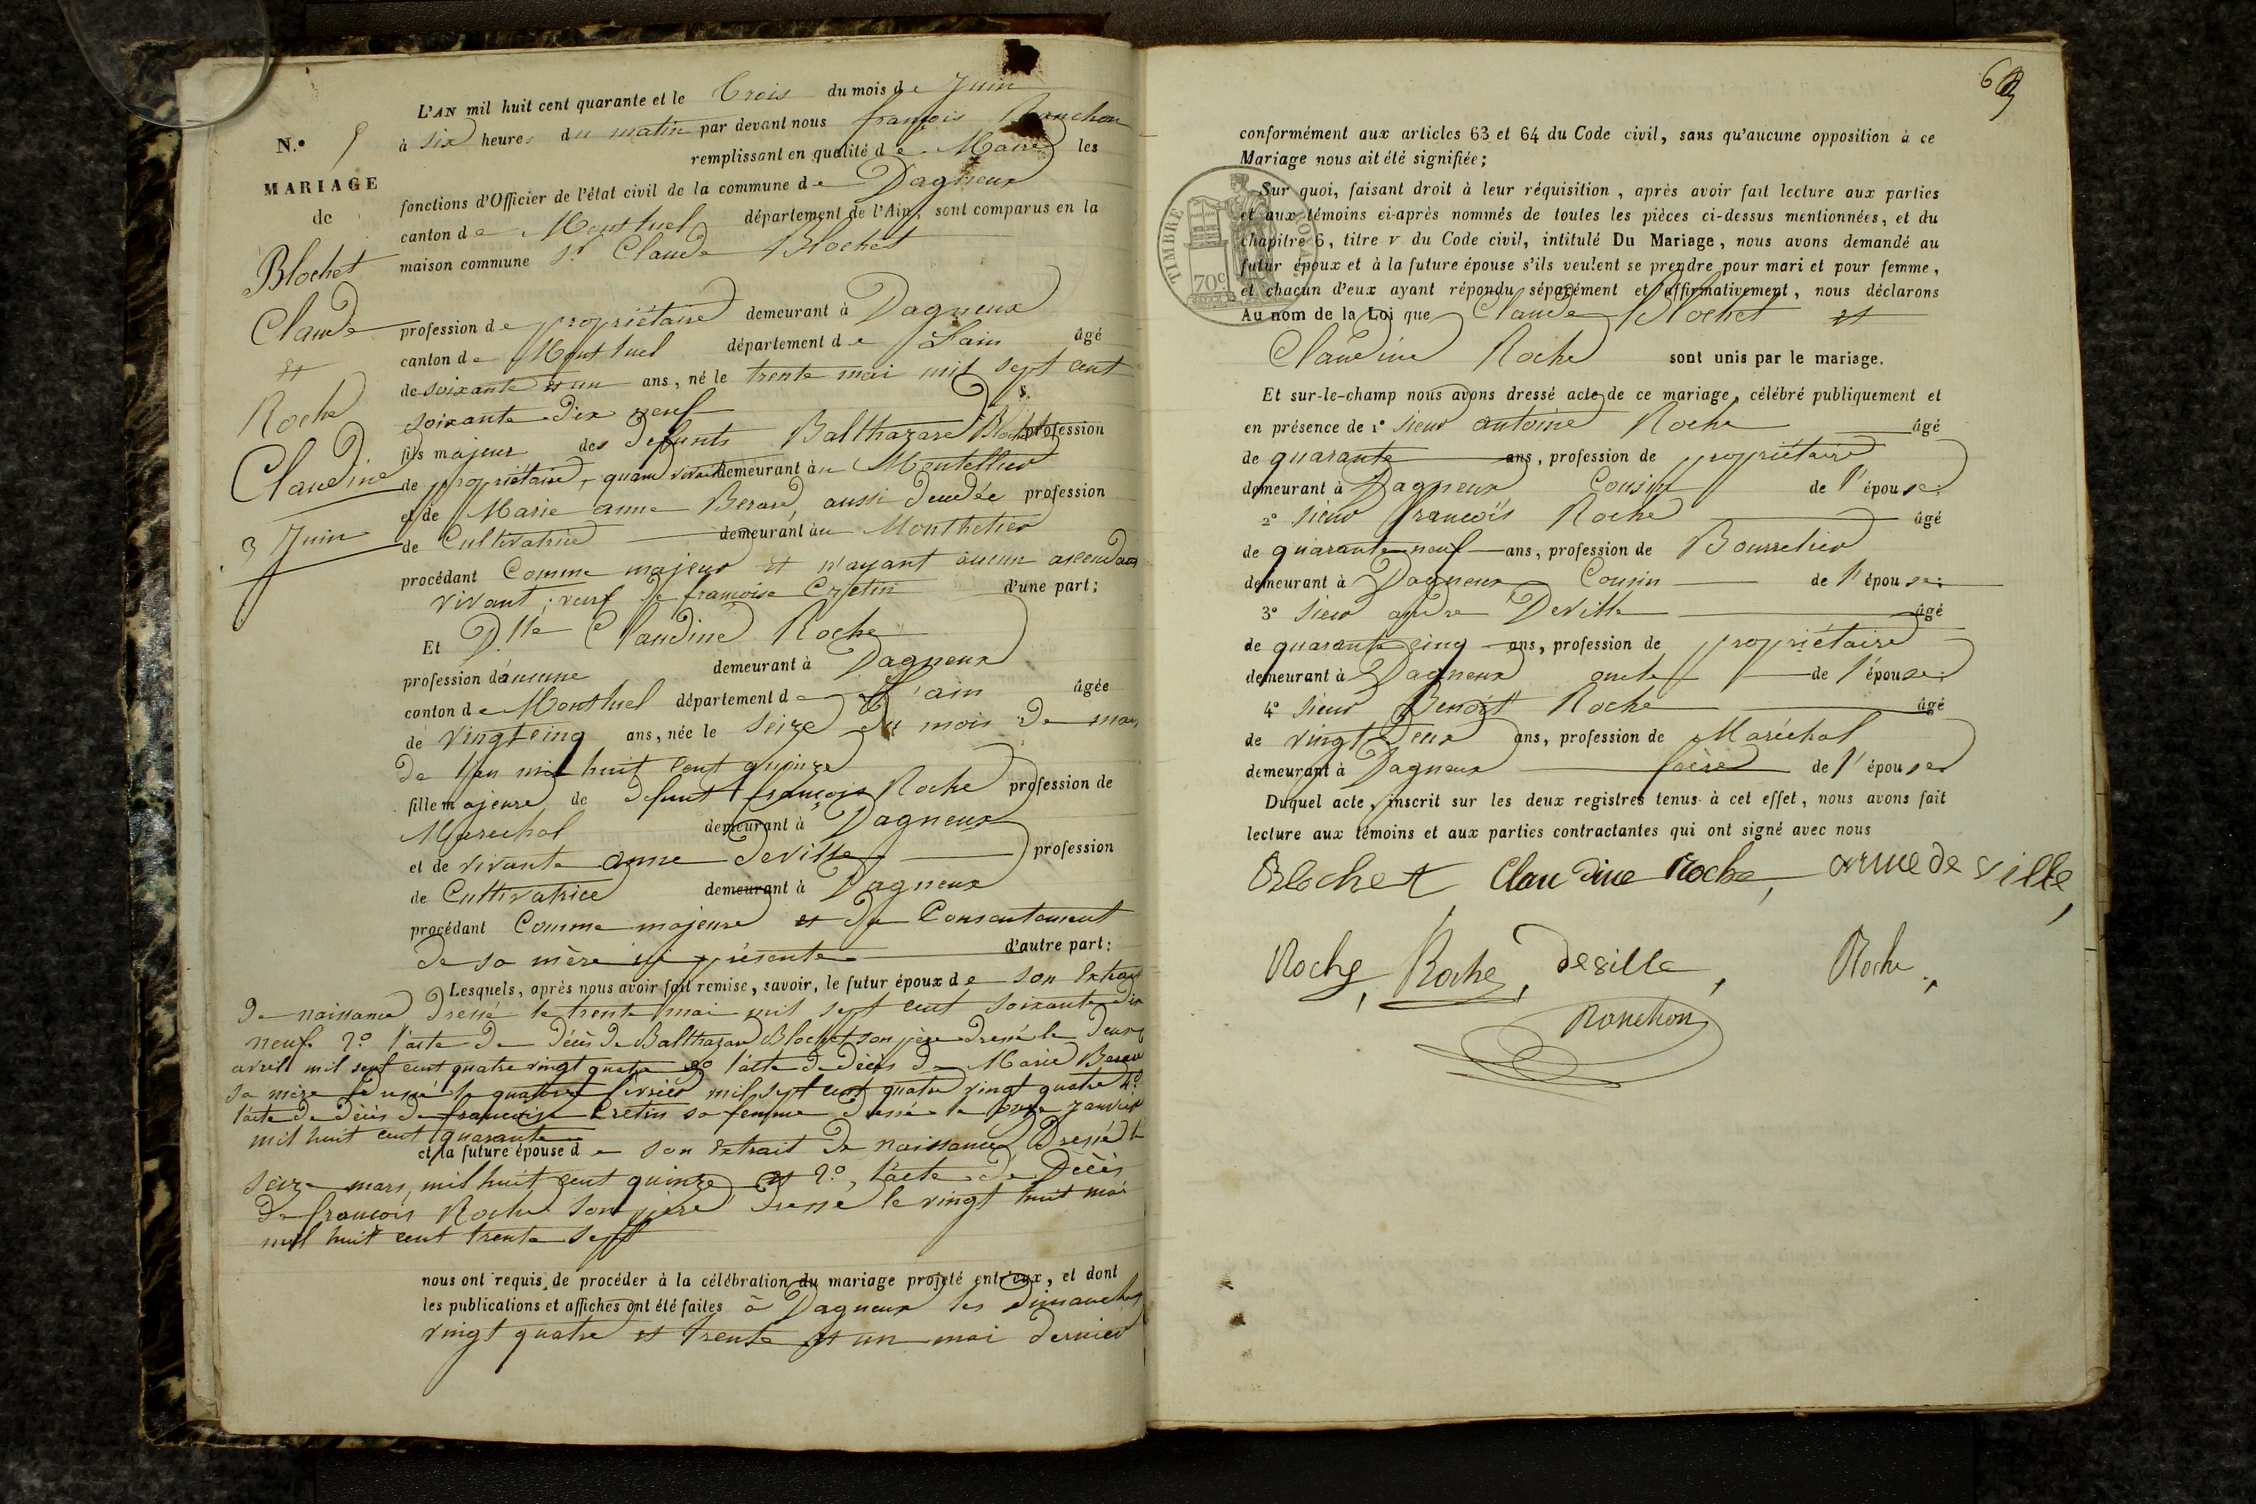 N.º 5
MARIAGE
de
Blochet
Claude
et
Roche
Claudine
3 Juin
L'AN mil huit cent quarante et le Trois du mois de Juin
à six heures du matin par devant nous françois Ronchon
remplissant en qualité de Maire les
fonctions d'Officier de l'état civil de la commune de Dagneux
canton de Montluel département de l'Ain, sont comparus en la
maison commune Sr Claude Blochet
profession de propriétaire demeurant à Dagneux
canton de Montluel département de L'ain âgé
de soixante et un ans, né le trente mai mil sept cent
soixante dix neuf
fils majeur des defunts Balthazard Blochet profession
de propriétaire, quand vivait demeurant au Montellier
et de Marie anne Berard, aussi décédée profession
de Cultivatrice demeurant au Monthelier
procédant Comme majeur et n'ayant aucun ascendans
vivant; veuf de francoise Cretin d'une part;
Et Dlle Claudine Roche
profession d'aucune demeurant à Dagneux
canton de Montluel département de L'ain âgée
de vingt cinq ans, née le seize du mois de mars
de l'an mil huit cent quinze
fille majeure de defunt françois Roche profession de
Marechal demeurant à Dagneux
et de vivante anne deville profession
de Cultivatrice demeurant à Dagneux
procédant Comme majeure et du Consentement
de sa mère ici présente d'autre part:
Lesquels, après nous avoir fait remise, savoir, le futur époux de son Extrait
de naissance dressé le trente mai mil sept cent soixante dix
neuf 2º l'acte de décès de Balthazard Blochet son père dressé le deux
avril mil sept cent quatre vingt quatre 3º l'acte de décès de Marie Berard
sa mère dressé le quatorze février mil sept cent quatre vingt quatre 4º
l'acte de décès de francoise Cretin sa femme dressé le onze janvier
mil huit cent quarante
et la future épouse de son extrait de naissance Dressé le
seize mars, mil huit cent quinze et 2º, l'acte de Décès
de françois Roche son père dressé le vingt huit mai
mil huit cent trente sept
nous ont requis de procéder à la célébration du mariage projeté entr'eux, et dont
les publications et affiches ont été faites à Dagneux les dimanches
vingt quatre et trente et un mai dernier
conformément aux articles 63 et 64 du Code civil, sans qu'aucune opposition à ce
Mariage nous ait été signifiée;
Sur quoi, faisant droit à leur réquisition, après avoir fait lecture aux parties
et aux témoins ci-après nommés de toutes les pièces ci-dessus mentionnées, et du
chapitre 6, titre v du Code civil, intitulé Du Mariage, nous avons demandé au
futur époux et à la future épouse s'ils veulent se prendre pour mari et pour femme,
et chacun d'eux ayant répondu séparément et affirmativement, nous déclarons
Au nom de la Loi que Claude Blochet et
Claudine Roche sont unis par le mariage.
TIMBRE ROYAL
70c
Et sur-le-champ nous avons dressé acte de ce mariage, célébré publiquement et
en présence de 1º sieur antoine Roche âgé
de quarante ans, profession de propriétaire
demeurant à Dagneux Cousin de l'épouse
2º sieur françois Roche âgé
de quarante neuf ans, profession de Bourrelier
demeurant à Dagneux Cousin de l'épouse;
3º sieur andre Deville âgé
de quarante cinq ans, profession de propriétaire
demeurant à Dagneux oncle de l'épouse;
4º sieur Benoît Roche âgé
de vingt deux ans, profession de Maréchal
demeurant à Dagneux frère de l'épouse
Duquel acte, inscrit sur les deux registres tenus à cet effet, nous avons fait
lecture aux témoins et aux parties contractantes qui ont signé avec nous
Blochet Claudine Roche, anne de ville,
Roche, Roche, deville, Roche,
Ronchon